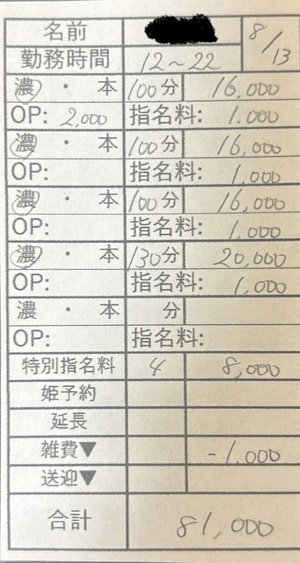 名前 8/13
勤務時間 12~22
濃・本 100分 16,000
OP: 2,000 指名料: 1.000
濃・本 100分 16,000
OP: 指名料: 1,000
濃・本 100分 16,000
OP: 指名料: 1,000
濃・本 130分 20,000
OP: 指名料: 1,000
濃・本 分
OP: 指名料:
特別指名料 4 8,000
姫予約
延長
雑費▼ -1.000
送迎▼
合計 81,000